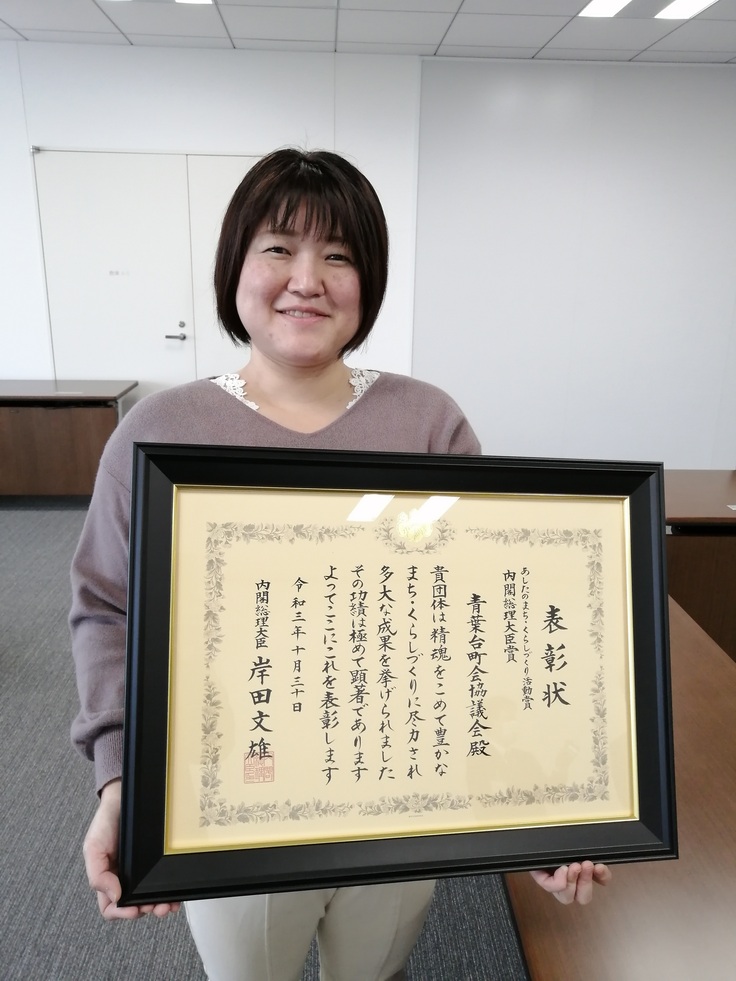 表彰状
あしたのまち・くらしづくり活動賞
内閣総理大臣賞
青葉台町会協議会殿
貴団体は精魂をこめて豊かな
まち・くらしづくりに尽力され
多大な成果を挙げられました
その功績は極めて顕著であります
よってここにこれを表彰します
令和三年十月三十日
内閣総理大臣 岸田文雄